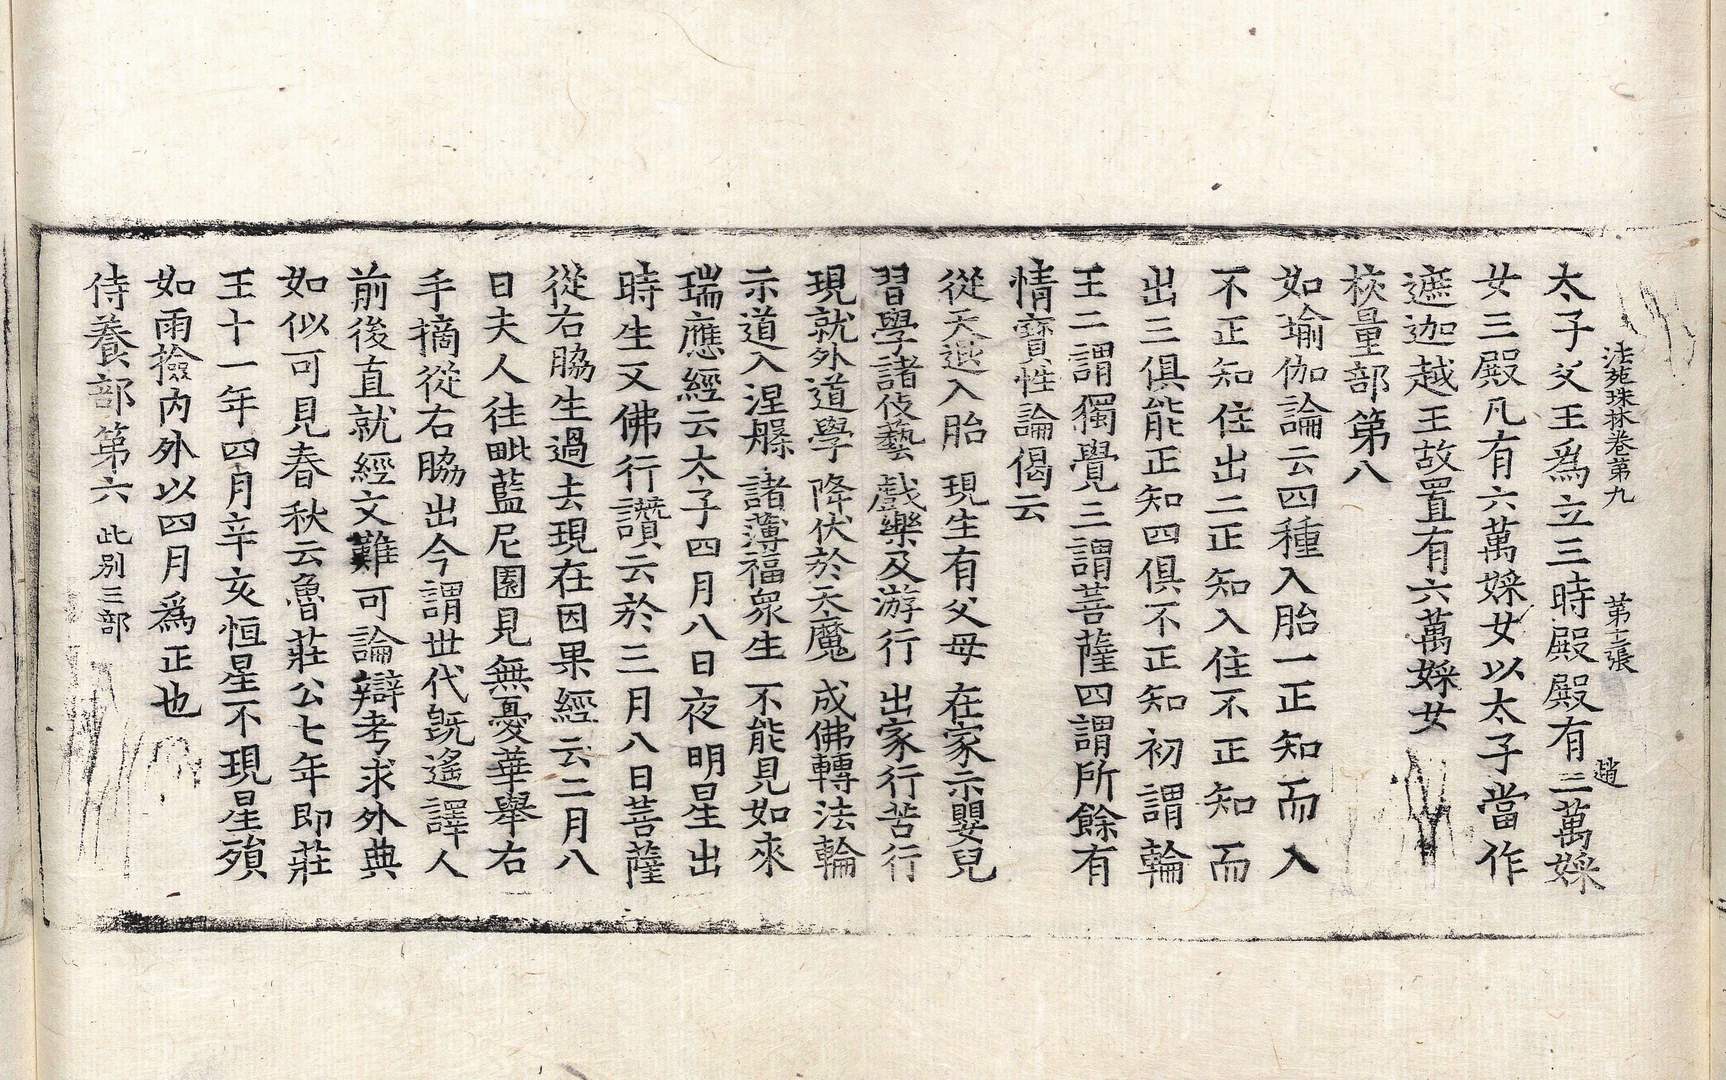 法苑珠林卷第九 第二張 趙
太子父王爲立三時殿殿有二萬婇
女三殿凡有六萬婇女以太子當作
遮迦越王故置有六萬婇女
挍量部第八
如瑜伽論云四種入胎一正知而入
不正知住出二正知入住不正知而
出三俱能正知四俱不正知初謂輪
王二謂獨覺三謂菩薩四謂所餘有
情寶性論偈云
從天退入胎 現生有父母 在家示嬰兒
習學諸伎藝 戲樂及游行 出家行苦行
現就外道學 降伏於天魔 成佛轉法輪
示道入涅槃 諸薄福衆生 不能見如來
瑞應經云太子四月八日夜明星出
時生又佛行讚云於三月八日菩薩
從右脇生過去現在因果經云二月八
日夫人往毗藍尼園見無憂華舉右
手摘從右脇出今謂世代旣遙譯人
前後直就經文難可論辯考求外典
如似可見春秋云魯莊公七年即莊
王十一年四月辛亥恒星不現星殞
如雨撿內外以四月爲正也
侍養部第六 此別三部